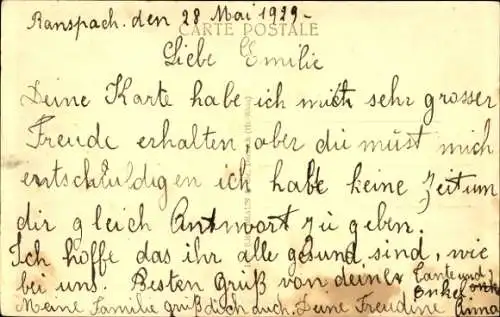 Ranspach. den 28 Mai 1929-
CARTE POSTALE
Liebe Emilie
Deine Karte habe ich mitt sehr grosser
Freude erhalten, aber du müst mich
entschuldigen ich habe keine Zeit um
dir gleich Antwort zu geben.
Ich hoffe das ihr alle gesund sind, wie
bei uns. Besten Grüß von deiner Tante und
Onkel
Meine Familie grüß dich auch, Deine Freudine Anna